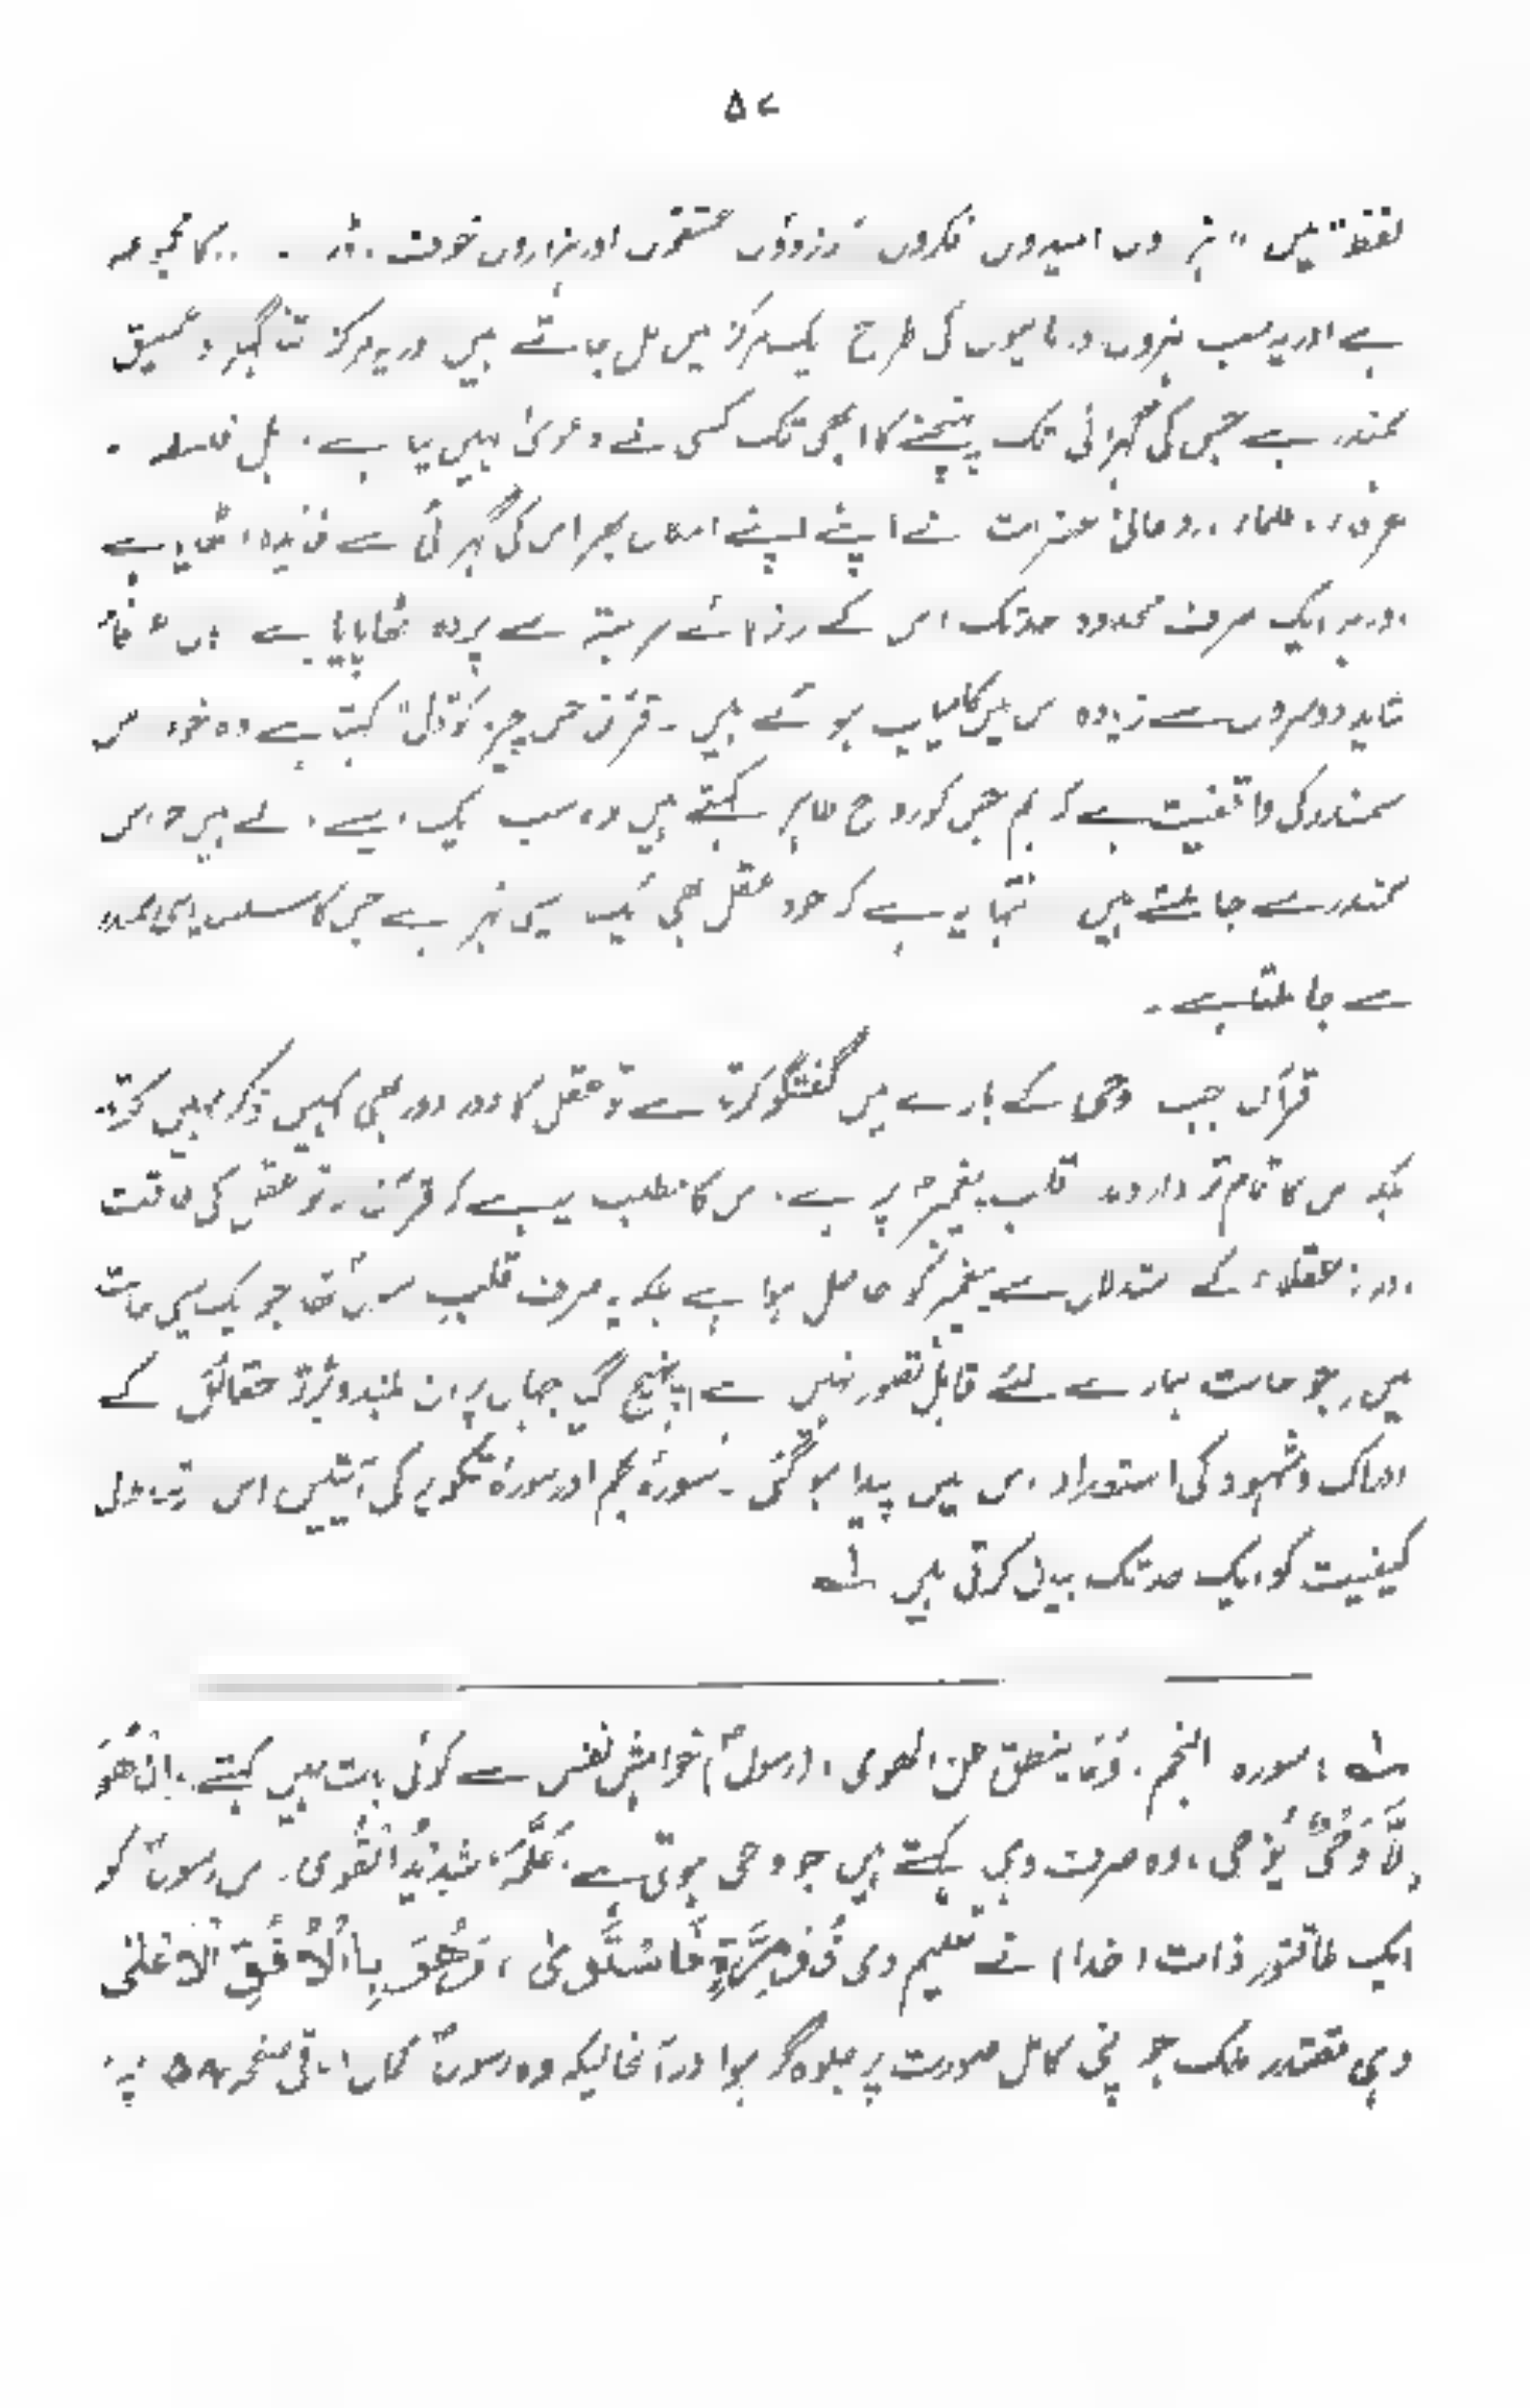 ۵۷
لفظ" میں "ہزاروں امیدوں فکروں آرزوؤں عشقوں اور ہزاروں خوف، ڈر کا مجموعہ
ہے اور یہ سب نہروں کی طرح یک مرکز میں مل جاتے ہیں اور یہ مرکز گہرا و عمیق
سمندر ہے جس کی گہرائی تک پہنچنے کا ابھی تک کسی نے دعویٰ نہیں کیا ہے۔ فلاسفہ
عرفاء، علماء، روحانی حضرات نے اپنے اپنے امکان بھر اس کی گہرائی سے فائدہ اٹھایا ہے
اور ہر ایک صرف محدود حد تک اس کے راز ہائے سربستہ سے پردہ اٹھا پایا ہے ہاں عرفاء
شاید دوسروں سے زیادہ اس میں کامیاب ہوئے ہیں۔ قرآن جس چیز کو "دل" کہتا ہے وہ خود اس
سمندر کی واقفیت ہے کہ ہم جس کو روح کہتے ہیں وہ سب یک ایسے ہیں جو اس
سمندر سے جا ملتے ہیں انتہا یہ ہے کہ خود عقل بھی ایک ایسی نہر ہے جس کا سلسلہ اسی سمندر
سے جا ملتا ہے۔
قرآن جب وحی کے بارے میں گفتگو کرتا ہے تو عقل کا دور دور بھی کہیں ذکر نہیں کرتا
بلکہ اس کا تمام تر دارومدار قلب پیغمبرؐ پر ہے۔ اس کا مطلب یہ ہے کہ قرآن نہ تو عقل کی طاقت
اور نہ عقلاء کے استدلال سے پیغمبر کو حاصل ہوا ہے بلکہ یہ صرف قلب رسولؐ تھا جو یک ایسی حالت
میں (جو حالت ہمارے لئے قابل تصور نہیں ہے) پہنچ گیا جہاں پر ان بلند و برتر حقائق کے
ادراک و شہود کی استعداد اس میں پیدا ہو گئی۔ سورۂ نجم اور سورۂ تکویر کی آیتیں اس
کیفیت کو ایک حد تک بیان کرتی ہیں ؎۱
؎۱ : سورہ النجم۔ وَمَا ینطق عن الھوی، (رسولؐ) خواہش نفس سے کوئی بات نہیں کہتے۔ اِنْ هُوَ
اِلَّا وَحْیٌ یُّوْحٰی، وہ صرف وہی کہتے ہیں جو وحی ہوتی ہے، عَلَّمَهٗ شَدِیْدُ الْقُوٰی۔ اس رسولؐ کو
ایک طاقتور ذات (خدا) نے تعلیم دی ذُوْ مِرَّةٍ فَاسْتَوٰیٰ، وَهُوَ بِاالْاُفُقِ الْاَعْلٰی
وہی مقتدر ملک جو اپنی کامل صورت پر جلوہ گر ہوا درآنحالیکہ وہ رسولؐ کمال (باقی صفحہ ۵۸ پر)